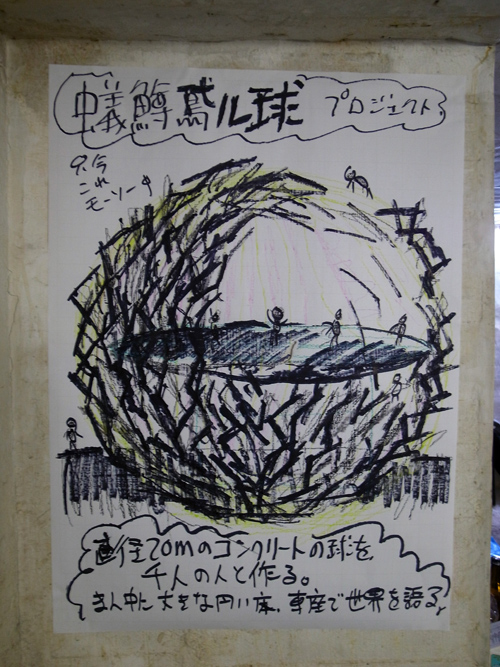 蟻鱒鳶ル球 プロジェクト
只今
これ
モーソー中
直径20mのコンクリートの球を
千人の人と作る。
まん中に大きな円い床、車座で世界を語る。